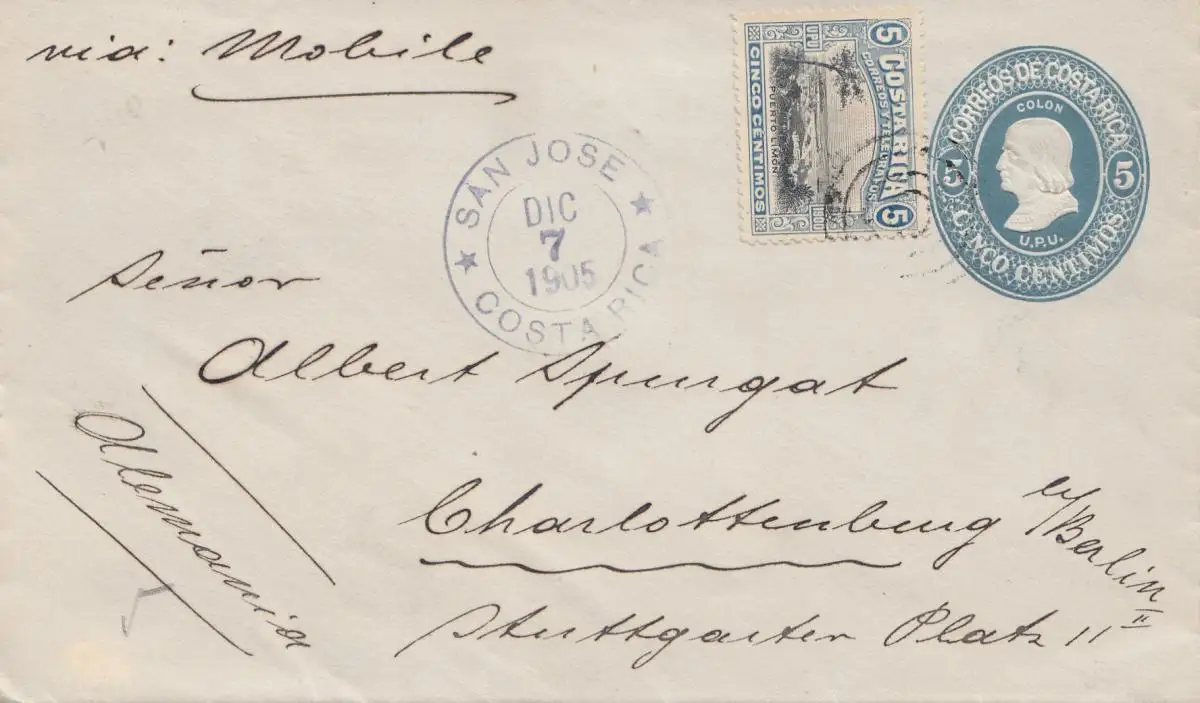 via: Mobile
5 COSTA RICA 5
CORREOS Y TELEGRAFOS
UPU 1900
PUERTO LIMON
CINCO CENTIMOS
CORREOS DE COSTA RICA
COLON
5 5
U.P.U.
CINCO CENTIMOS
SAN JOSE
DIC
7
1905
COSTA RICA
Señor
Albert Spurgat
Alemania
Charlottenburg b/Berlin
Stuttgarter Platz 11 II